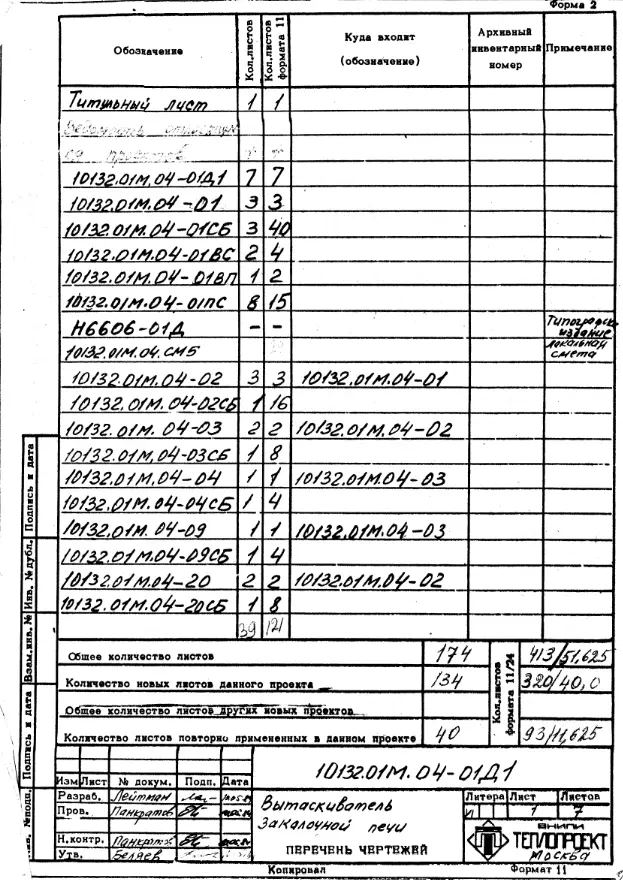 Форма 2
Обозначение Кол.листов Кол.листов формата 11 Куда входит (обозначение) Архивный инвентарный номер Примечание
Титульный лист 1 1
10132.01М.04-01Д1 7 7
10132.01М.04-01 3 3
10132.01М.04-01СБ 3 40
10132.01М.04-01ВС 2 4
10132.01М.04-01ВП 1 2
10132.01М.04-01ПС 8 15
Н6606-01Д – – Типографск. издание
10132.01М.04.СМ5 локальная смета
10132.01М.04-02 3 3 10132.01М.04-01
10132.01М.04-02СБ 1 16
10132.01М.04-03 2 2 10132.01М.04-02
10132.01М.04-03СБ 1 8
10132.01М.04-04 1 1 10132.01М.04-03
10132.01М.04-04СБ 1 4
10132.01М.04-09 1 1 10132.01М.04-03
10132.01М.04-09СБ 1 4
10132.01М.04-20 2 2 10132.01М.04-02
10132.01М.04-20СБ 1 8
39 121
Общее количество листов 174 Кол.листов формата 11/24 413/51,625
Количество новых листов данного проекта 134 320/40,0
Общее количество листов других новых проектов
Количество листов повторно примененных в данном проекте 40 93/11,625
Подпись и дата
Инв. № дубл.
Взам.инв. №
Подпись и дата
№подл.
10132.01М.04-01Д1
Изм Лист № докум. Подп. Дата
Разраб. Лейтман
Пров. Панкратов
Н.контр. Панкратов
Утв. Беляев
Вытаскиватель
Закалочной печи
ПЕРЕЧЕНЬ ЧЕРТЕЖЕЙ
Литера Лист Листов
И 1 7
ВНИПИ
ТЕПЛОПРОЕКТ
Москва
Копировал Формат 11